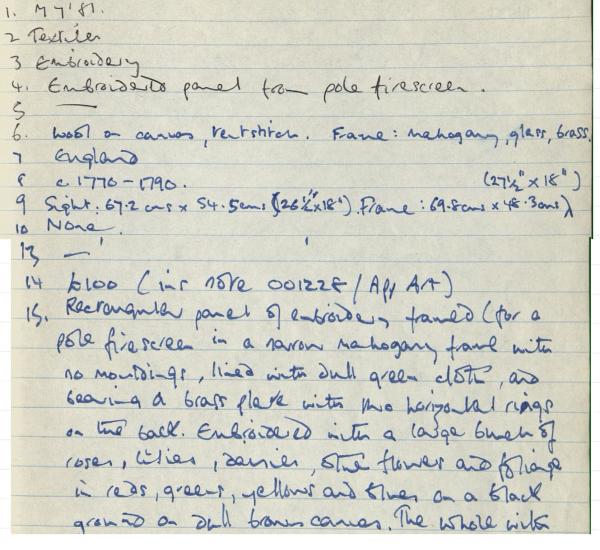 1. MY'81.
2 Textiles
3 Embroidery
4. Embroidered panel from pole firescreen.
5 —
6. Wool on canvas, tentstitch. Frame: mahogany, glass, brass.
7 England
8 c. 1770-1790. (27½" x 18")
9 Sight: 67.2 cms x 54.5cms (26½" x 18") Frame: 69.8cms x 48.3cms
10 None.
13 —
14 £100 (ins note 001228/App Art)
15. Rectangular panel of embroidery framed (for a
pole firescreen in a narrow mahogany frame with
no mouldings, lined with dull green cloth, and
bearing a brass plate with two horizontal rings
on the back. Embroidered with a large bunch of
roses, lilies, daisies, other flowers and foliage
in reds, greens, yellows and blues on a black
ground on dull brown canvas. The whole with